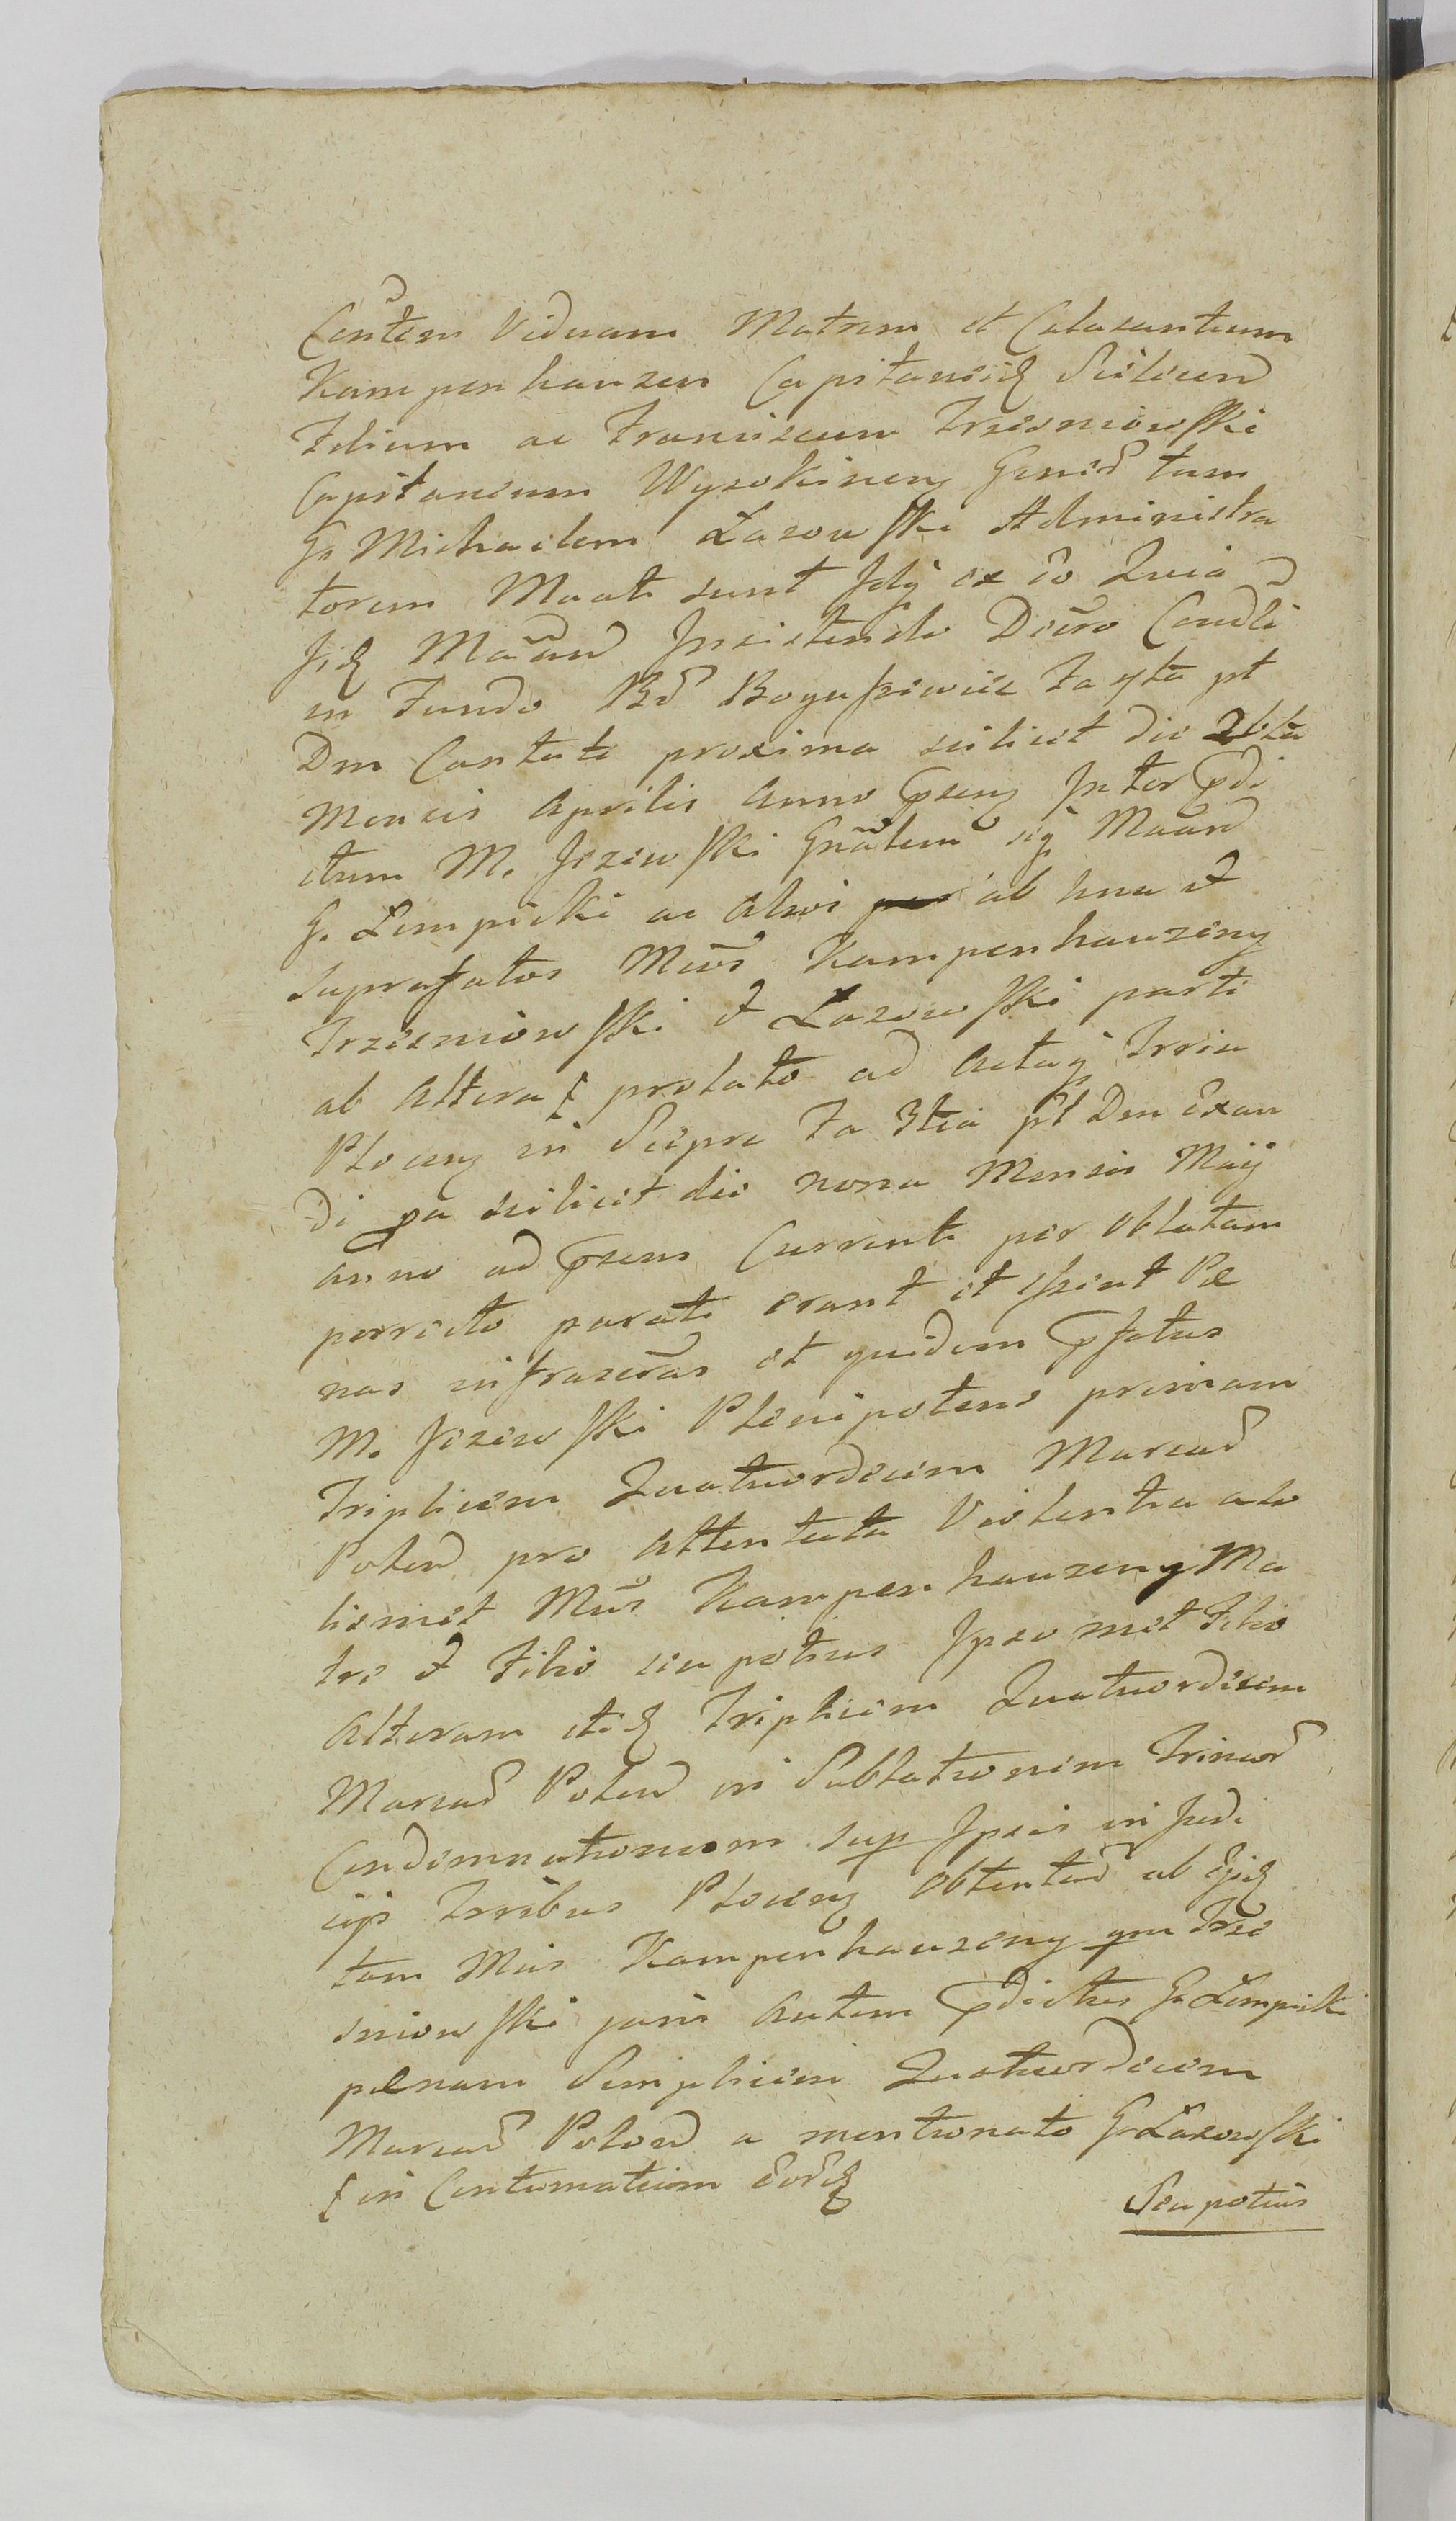 Contem Viduam Matrem et Calasantium
Kampenhauzen Capitaneid Scilicen
Filium ac Franciscum Trzesniowski
Capitaneum Wyzokineng Gened tum
G. Michaelem Lazowski Administra
torem Maati sunt Idq ex eo Quia
Insistendo Decro Condli
in Fundo Bd Boguszewice Fa 4ta pt
Dm Cantate proxima scilicet die 26ta
Mensis Aprilis Anno pseng Inter pdi
ctum M. Jezewski Gnalem sq Maand
G. Lempicki ac Alios ab una et
suprafatos Mcos Kampenhauzeny
Trzesniowski et Lazowski parti
ab Altera prolato ad Actaq Trria
Ploceng in Scepre Fa 3tia pt Dm Exau
di pa scilicet die nona Mensis Maij
anno ad psens Currente per Oblatam
porrecto parati erant et Pae
nas infrascras et quidem pfatus
M. Jezewski Plenipotens primam
Triplicem Quatuordecim Marcad
Polend pro Attentata Violentia alo
liemet Mcis Kampenhauzeny Ma
tre et Filio seu potius Ipso met Filio
Alteram itid Triplicem Quatuordecim
Marcad Polend in Sublationem Trinard
Condemnationum sup Ipsis in Judi
cijs Trribus Ploceng Obtentad ab
tam Mcis Kampenhauzeny qm Trze
sniowski jam Autem pdictus G. Lempicki
paenam Simplicem Quatuordecim
Marcad Polond a mentionato G. Lazowski
in Contumatiam
Seu potius